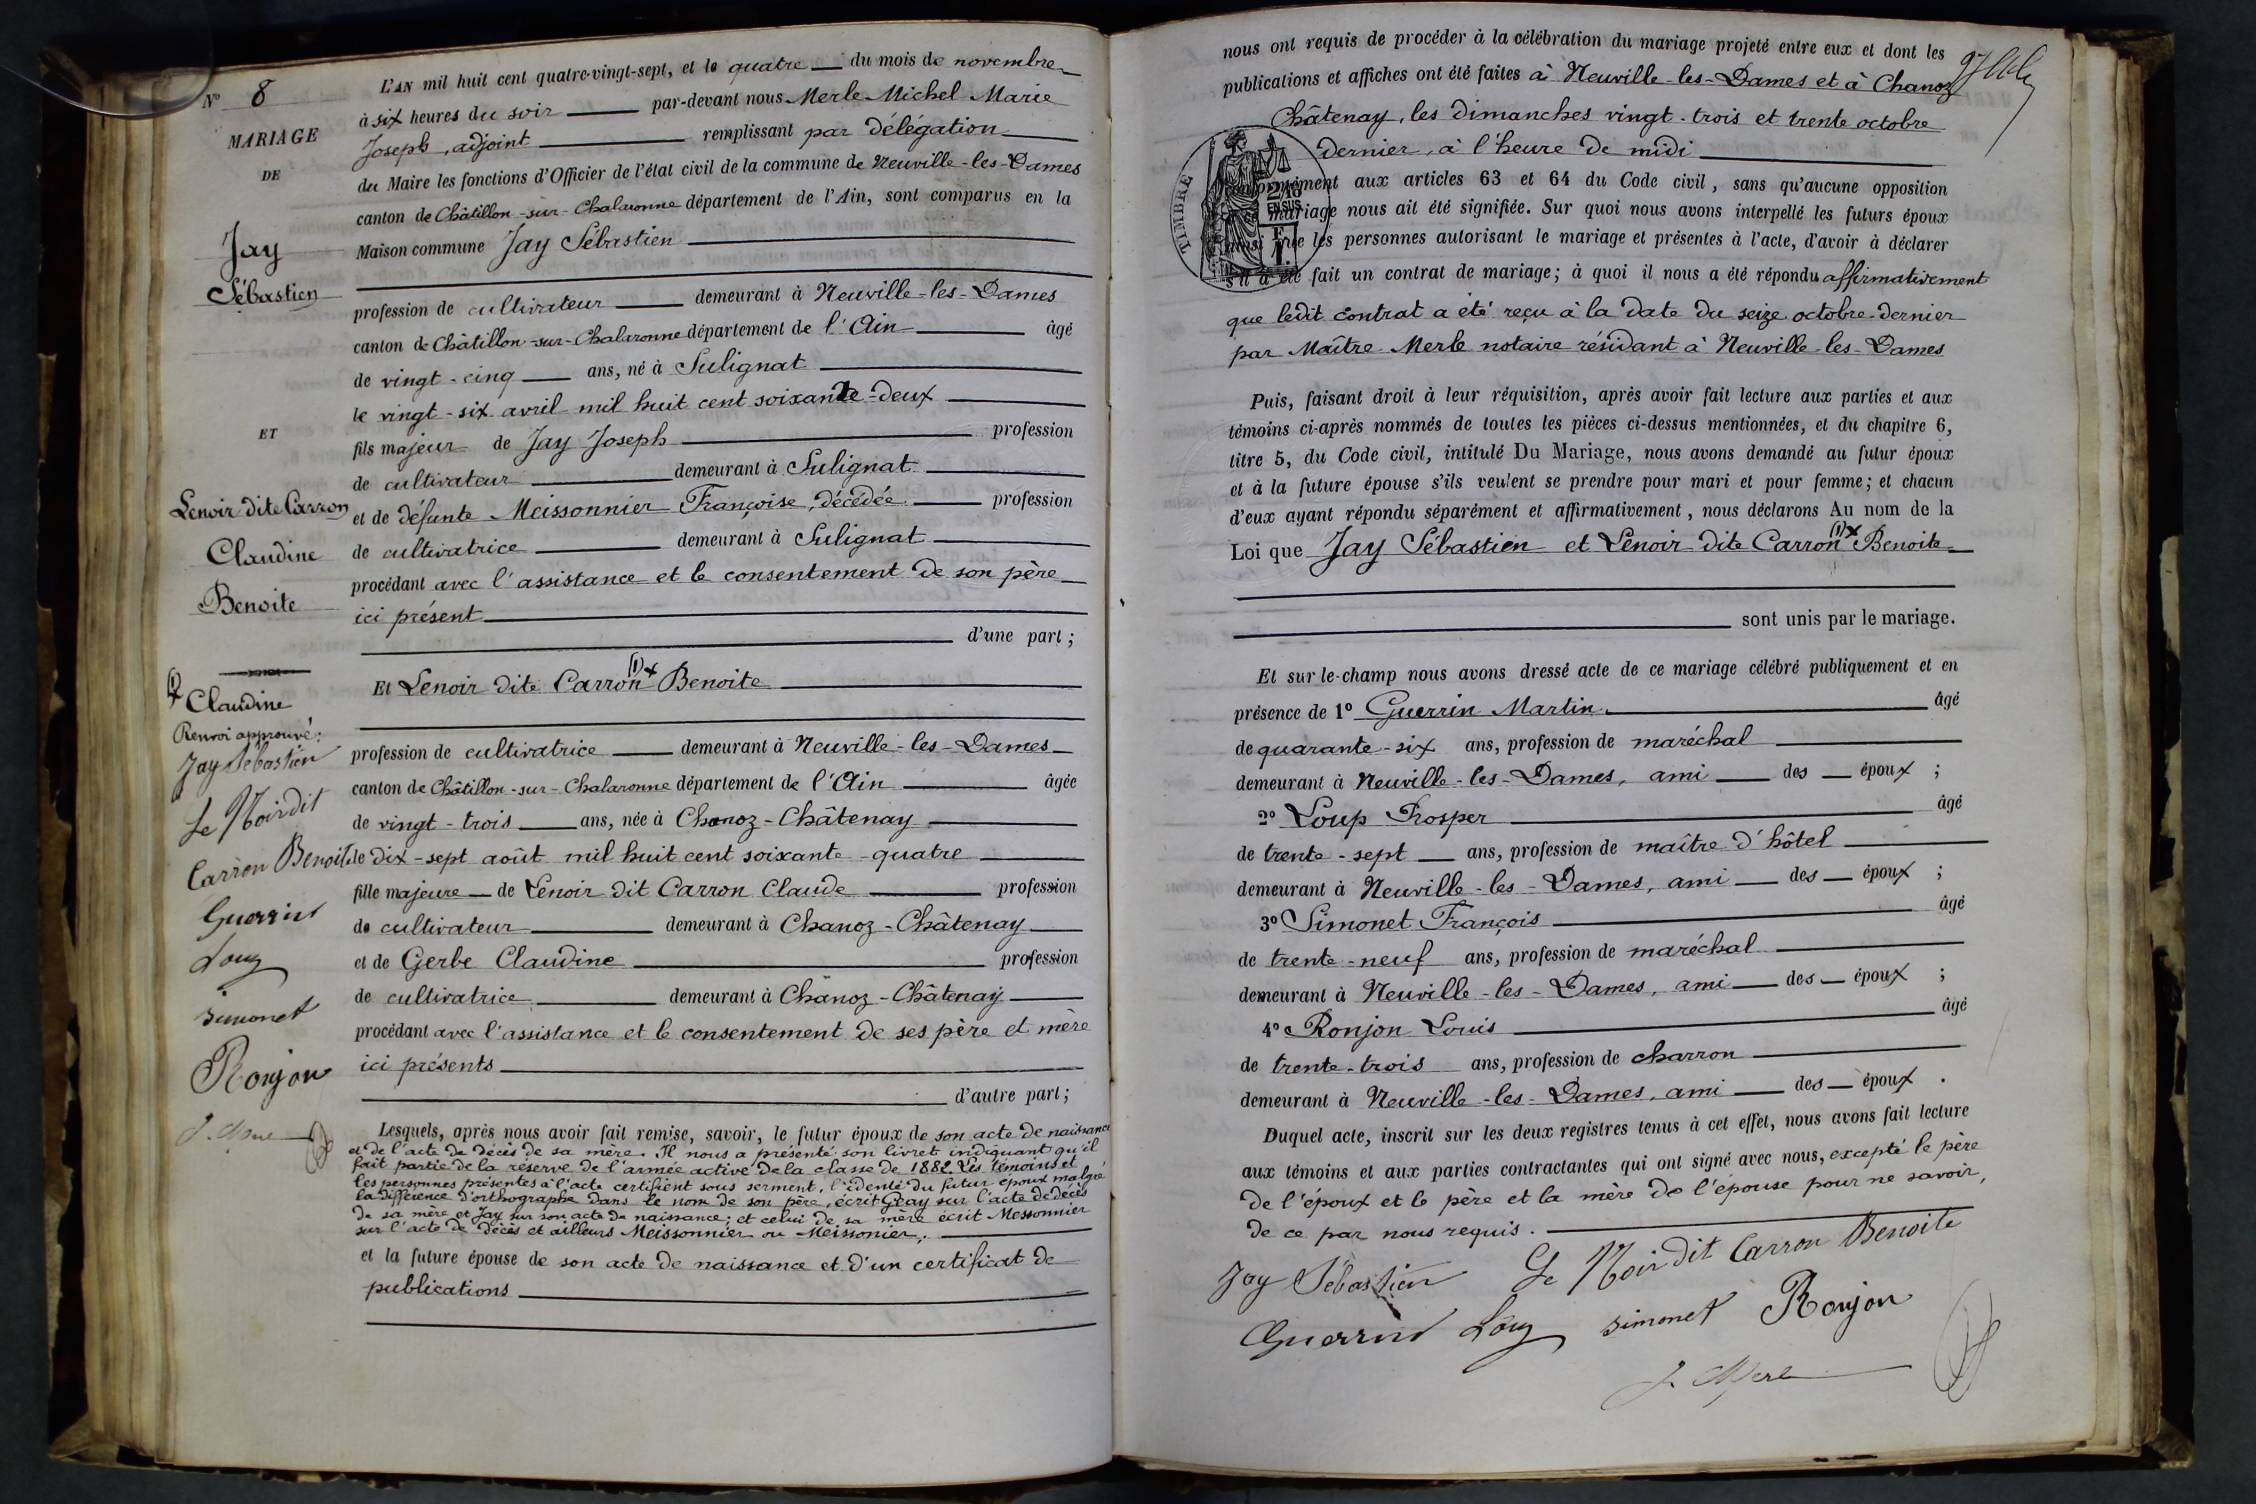 N° 8
MARIAGE
DE
Jay
Sébastien
ET
Lenoir dite Carron
Claudine
Benoite
(1) Claudine
Renvoi approuvé:
Jay Sébastien
Le Noir dit
Carron Benoite
Guerrin
Loup
Simonet
Ronjon
J. Merle
L'AN mil huit cent quatre-vingt-sept, et le quatre du mois de novembre
à six heures du soir par-devant nous Merle Michel Marie
Joseph, adjoint remplissant par délégation
du Maire les fonctions d'Officier de l'état civil de la commune de Neuville-les-Dames
canton de Châtillon-sur-Chalaronne département de l'Ain, sont comparus en la
Maison commune Jay Sébastien
profession de cultivateur demeurant à Neuville-les-Dames
canton de Châtillon-sur-Chalaronne département de l'Ain âgé
de vingt-cinq ans, né à Sulignat
le vingt-six avril mil huit cent soixante-deux
fils majeur de Jay Joseph profession
de cultivateur demeurant à Sulignat
et de défunte Meissonnier Françoise, décédée profession
de cultivatrice demeurant à Sulignat
procédant avec l'assistance et le consentement de son père
ici présent
d'une part;
Et Lenoir dite Carron (1)x Benoite
profession de cultivatrice demeurant à Neuville-les-Dames
canton de Châtillon-sur-Chalaronne département de l'Ain âgée
de vingt-trois ans, née à Chanoz-Châtenay
le dix-sept août mil huit cent soixante-quatre
fille majeure de Lenoir dit Carron Claude profession
de cultivateur demeurant à Chanoz-Châtenay
et de Gerbe Claudine profession
de cultivatrice demeurant à Chanoz-Châtenay
procédant avec l'assistance et le consentement de ses père et mère
ici présents
d'autre part;
Lesquels, après nous avoir fait remise, savoir, le futur époux de son acte de naissance
et de l'acte de décès de sa mère. Il nous a présenté son livret indiquant qu'il
fait partie de la réserve de l'armée active de la classe de 1882. Les témoins et
les personnes présentes à l'acte certifient sous serment, l'identé du futur époux malgré
la différence d'orthographe dans le nom de son père, écrit Geay sur l'acte de décès
de sa mère et Jay sur son acte de naissance; et celui de sa mère écrit Messonnier
sur l'acte de décès et ailleurs Meissonnier ou Meissonier,
et la future épouse de son acte de naissance et d'un certificat de
publications
nous ont requis de procéder à la célébration du mariage projeté entre eux et dont les
publications et affiches ont été faites à Neuville-les-Dames et à Chanoz
Châtenay, les dimanches vingt-trois et trente octobre
dernier, à l'heure de midi
TIMBRE
2/10
EN SUS
F.
1.
conformément aux articles 63 et 64 du Code civil, sans qu'aucune opposition
mariage nous ait été signifiée. Sur quoi nous avons interpellé les futurs époux
ainsi que les personnes autorisant le mariage et présentes à l'acte, d'avoir à déclarer
s'il a été fait un contrat de mariage; à quoi il nous a été répondu affirmativement
que ledit contrat a été reçu à la date du seize octobre dernier
par Maître Merle notaire résidant à Neuville-les-Dames
Puis, faisant droit à leur réquisition, après avoir fait lecture aux parties et aux
témoins ci-après nommés de toutes les pièces ci-dessus mentionnées, et du chapitre 6,
titre 5, du Code civil, intitulé Du Mariage, nous avons demandé au futur époux
et à la future épouse s'ils veulent se prendre pour mari et pour femme; et chacun
d'eux ayant répondu séparément et affirmativement, nous déclarons Au nom de la
Loi que Jay Sébastien et Lenoir dite Carron (1)x Benoite
sont unis par le mariage.
Et sur-le-champ nous avons dressé acte de ce mariage célébré publiquement et en
présence de 1° Guerrin Martin âgé
de quarante-six ans, profession de maréchal
demeurant à Neuville-les-Dames, ami des époux ;
2° Loup Prosper âgé
de trente-sept ans, profession de maître d'hôtel
demeurant à Neuville-les-Dames, ami des époux ;
3° Simonet François âgé
de trente-neuf ans, profession de maréchal
demeurant à Neuville-les-Dames, ami des époux ;
4° Ronjon Louis âgé
de trente-trois ans, profession de charron
demeurant à Neuville-les-Dames, ami des époux .
Duquel acte, inscrit sur les deux registres tenus à cet effet, nous avons fait lecture
aux témoins et aux parties contractantes qui ont signé avec nous, excepté le père
de l'époux et le père et la mère de l'épouse pour ne savoir,
de ce par nous requis.
Jay Sébastien Le Noir dit Carron Benoite
Guerrin Loup Simonet Ronjon
J. Merle